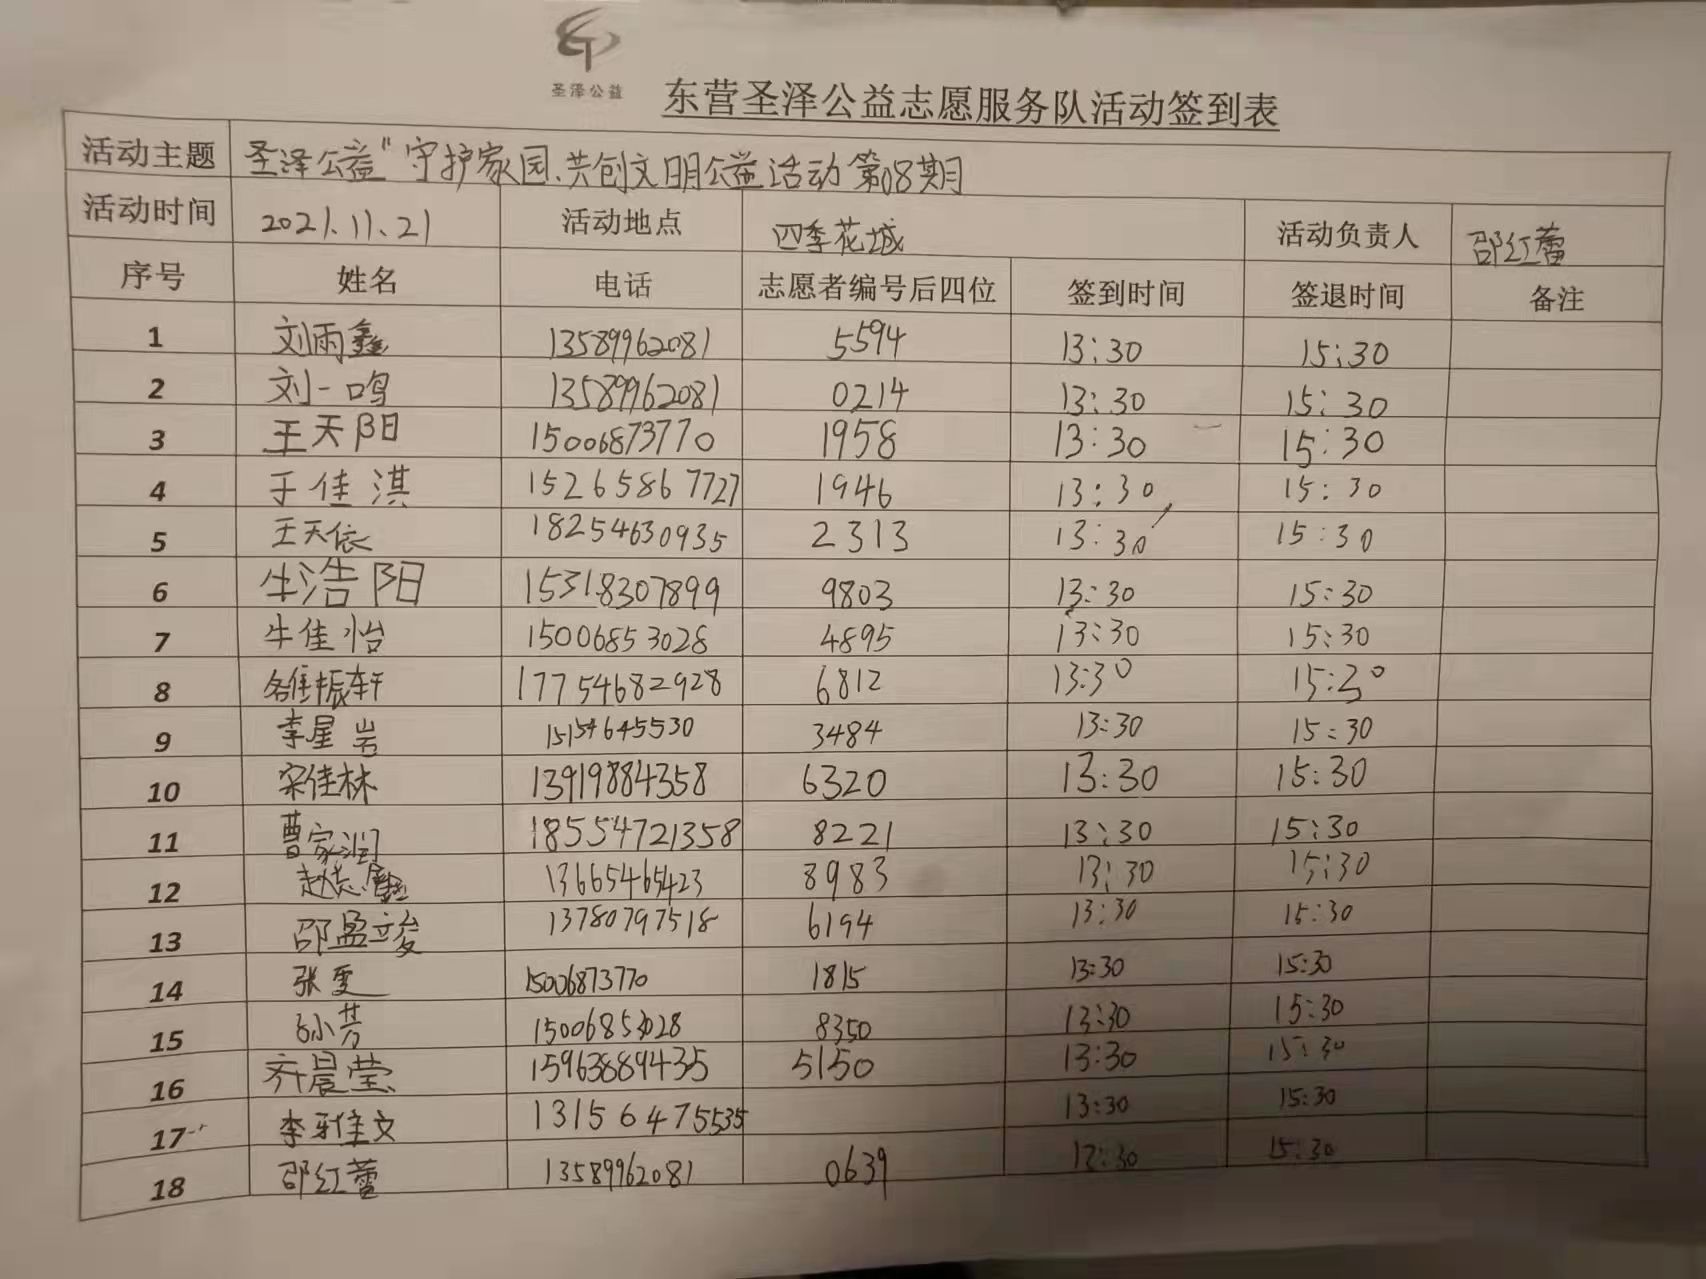 圣泽公益
东营圣泽公益志愿服务队活动签到表
活动主题 圣泽公益"守护家园、共创文明公益活动第08期
活动时间 2021.11.21 活动地点 四季花城 活动负责人 邵红蕾
序号 姓名 电话 志愿者编号后四位 签到时间 签退时间 备注
1 刘雨鑫 13589962081 5594 13:30 15:30
2 刘一鸣 13589962081 0214 13:30 15:30
3 王天阳 15006873770 1958 13:30 15:30
4 于佳淇 15265867727 1946 13:30 15:30
5 王天依 18254630935 2313 13:30 15:30
6 牛浩阳 15318307899 9803 13:30 15:30
7 牛佳怡 15006853028 4895 13:30 15:30
8 维振轩 17754682928 6812 13:30 15:30
9 李星岩 15154645530 3484 13:30 15:30
10 宋佳林 13919884358 6320 13:30 15:30
11 曹家润 18554721358 8221 13:30 15:30
12 13665465423 8983 13:30 15:30
13 邵盈竣 13780797518 6194 13:30 15:30
14 张雯 15006873770 1815 13:30 15:30
15 孙芳 15006853028 8350 13:30 15:30
16 齐晨莹 15963889435 5150 13:30 15:30
17 李雅文 13156475535 13:30 15:30
18 邵红蕾 13589962081 0639 13:30 15:30